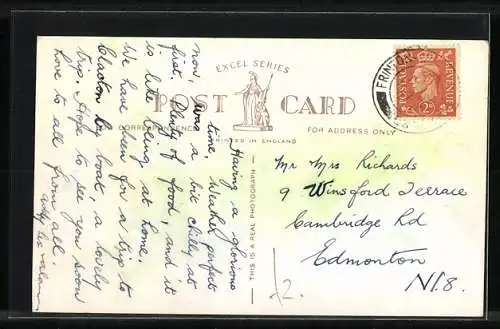 EXCEL SERIES
POST CARD
CORRESPONDENCE
PRINTED IN ENGLAND
FOR ADDRESS ONLY
THIS IS A REAL PHOTOGRAPH
Having a glorious
time, Weather perfect
now, was a bit chilly at
first. Plenty of food, and it
is like being at home.
We have been for a trip to
Clacton by boat, a lovely
trip. Hope to see you soon
love to all from all
POSTAGE REVENUE
2D
FRINTON
Mr Mrs Richards
9 Winsford Terrace
Cambridge Rd
Edmonton
N.18.
12.